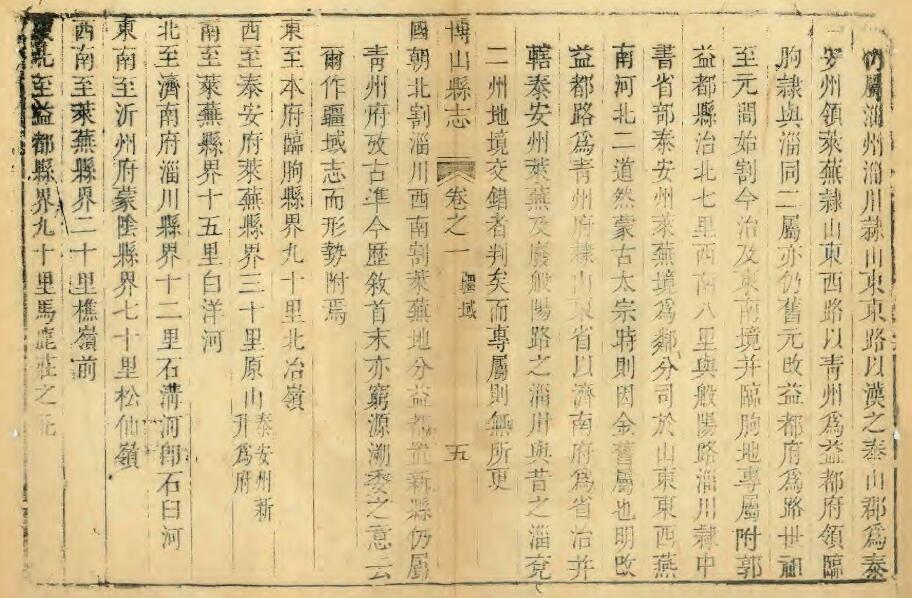 仍屬淄州淄川隸山東東路以漢之泰山郡爲泰
安州領萊蕪隸山東西路以青州爲益都府領臨
朐隸與淄同二屬亦仍舊元改益都府爲路世祖
至元間始割今治及東南境并臨朐地專屬附郭
益都縣治北七里西南八里與般陽路淄川隸中
書省部泰安州萊蕪境爲鄰分司於山東東西燕
南河北二道然蒙古太宗時則因金舊屬也明改
益都路爲青州府隸山東省以濟南府爲省治并
轄泰安州萊蕪及廢般陽路之淄川與昔之淄兗
二州地境交錯者判矣而專屬則無所更
博山縣志 卷之一 疆域 五
國朝北割淄川西南割萊蕪地分益都置新縣仍屬
青州府攷古準今歷敘首末亦窮源溯委之意云
爾作疆域志而形勢附焉
東至本府臨朐縣界九十里北冶嶺
西至泰安府萊蕪縣界三十里原山泰安州新升爲府
南至萊蕪縣界十五里白洋河
北至濟南府淄川縣界十二里石溝河卽石臼河
東南至沂州府蒙陰縣界七十里松仙嶺
西南至萊蕪縣界二十里樵嶺前
東北至益都縣界九十里馬鹿莊之